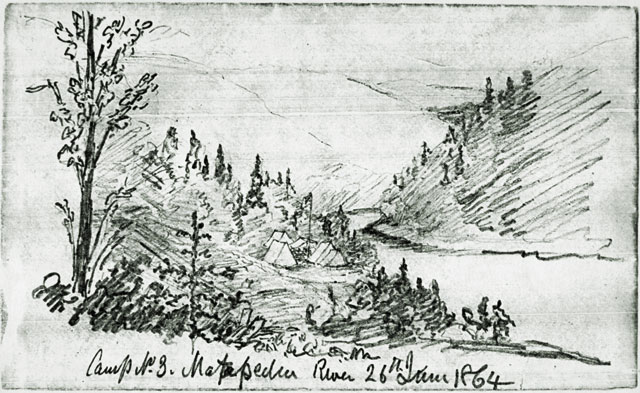 Camp No 3. Matapedia River 26th June 1864